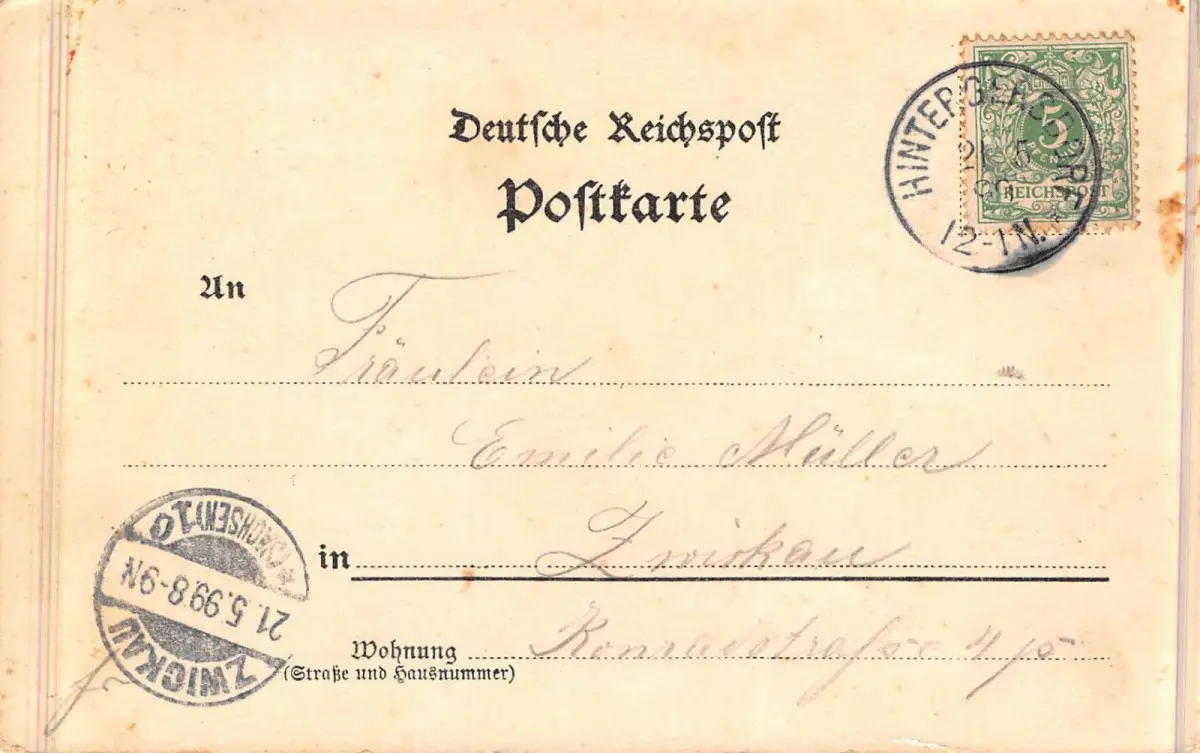 Deutsche Reichspost
Postkarte
HINTERGERSDORF
21 5
99
12-1N.
5
REICHSPOST
An Fräulein
Emilie Müller
in Zwickau
Wohnung Konradstrasse 4
(Straße und Hausnummer)
ZWICKAU
21.5.99.8-9N
(SACHSEN)1